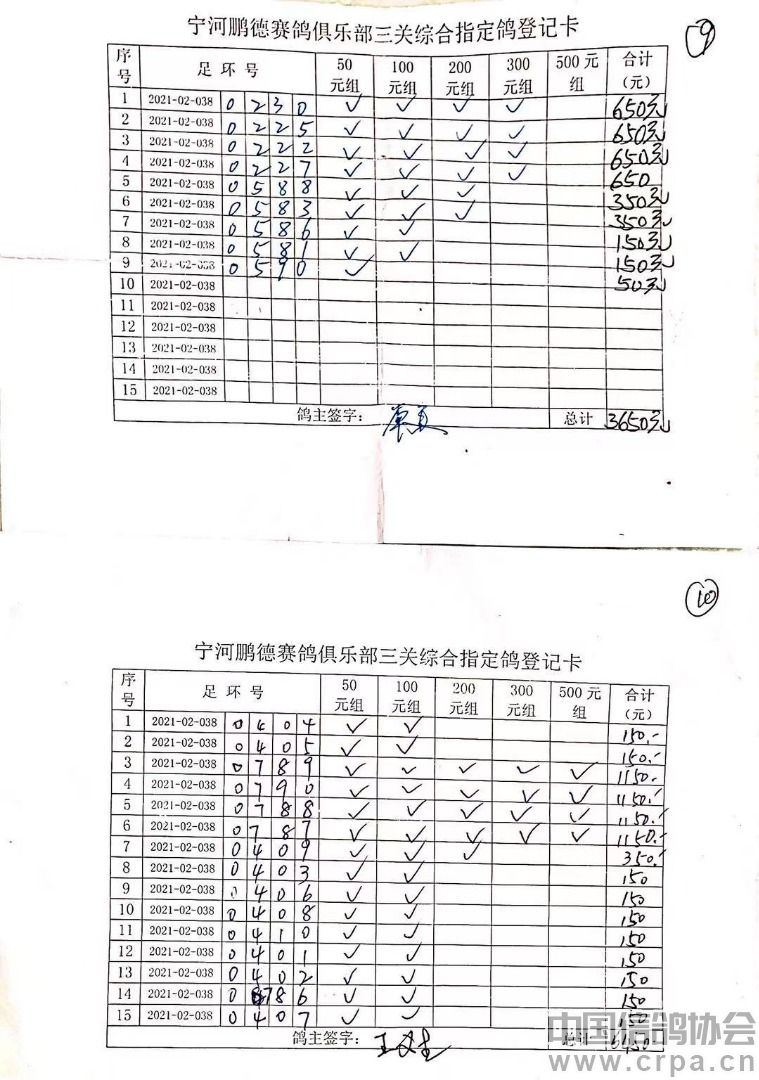 宁河鹏德赛鸽俱乐部三关综合指定鸽登记卡 9
序号 足环号 50元组 100元组 200元组 300元组 500元组 合计(元)
1 2021-02-038 0230 ✓ ✓ ✓ ✓ 650元
2 2021-02-038 0225 ✓ ✓ ✓ ✓ 650元
3 2021-02-038 0222 ✓ ✓ ✓ ✓ 650元
4 2021-02-038 0227 ✓ ✓ ✓ ✓ 650
5 2021-02-038 0588 ✓ ✓ ✓ 350元
6 2021-02-038 0583 ✓ ✓ ✓ 350元
7 2021-02-038 0586 ✓ ✓ 150元
8 2021-02-038 0581 ✓ ✓ 150元
9 2021-02-038 0590 ✓ 50元
10 2021-02-038
11 2021-02-038
12 2021-02-038
13 2021-02-038
14 2021-02-038
15 2021-02-038
鸽主签字： 总计 3650元
10
宁河鹏德赛鸽俱乐部三关综合指定鸽登记卡
序号 足环号 50元组 100元组 200元组 300元组 500元组 合计(元)
1 2021-02-038 0404 ✓ ✓ 150.-
2 2021-02-038 0405 ✓ ✓ 150.-
3 2021-02-038 0789 ✓ ✓ ✓ ✓ ✓ 1150.-
4 2021-02-038 0790 ✓ ✓ ✓ ✓ ✓ 1150.-
5 2021-02-038 0788 ✓ ✓ ✓ ✓ ✓ 1150.-
6 2021-02-038 0787 ✓ ✓ ✓ ✓ ✓ 1150.-
7 2021-02-038 0409 ✓ ✓ ✓ 350.-
8 2021-02-038 0403 ✓ ✓ 150
9 2021-02-038 0406 ✓ ✓ 150
10 2021-02-038 0408 ✓ ✓ 150
11 2021-02-038 0410 ✓ ✓ 150
12 2021-02-038 0401 ✓ ✓ 150
13 2021-02-038 0402 ✓ ✓ 150
14 2021-02-038 0786 ✓ ✓ 150
15 2021-02-038 0407 ✓ ✓ 150
鸽主签字： 总计 6450
中国信鸽协会
www.crpa.cn